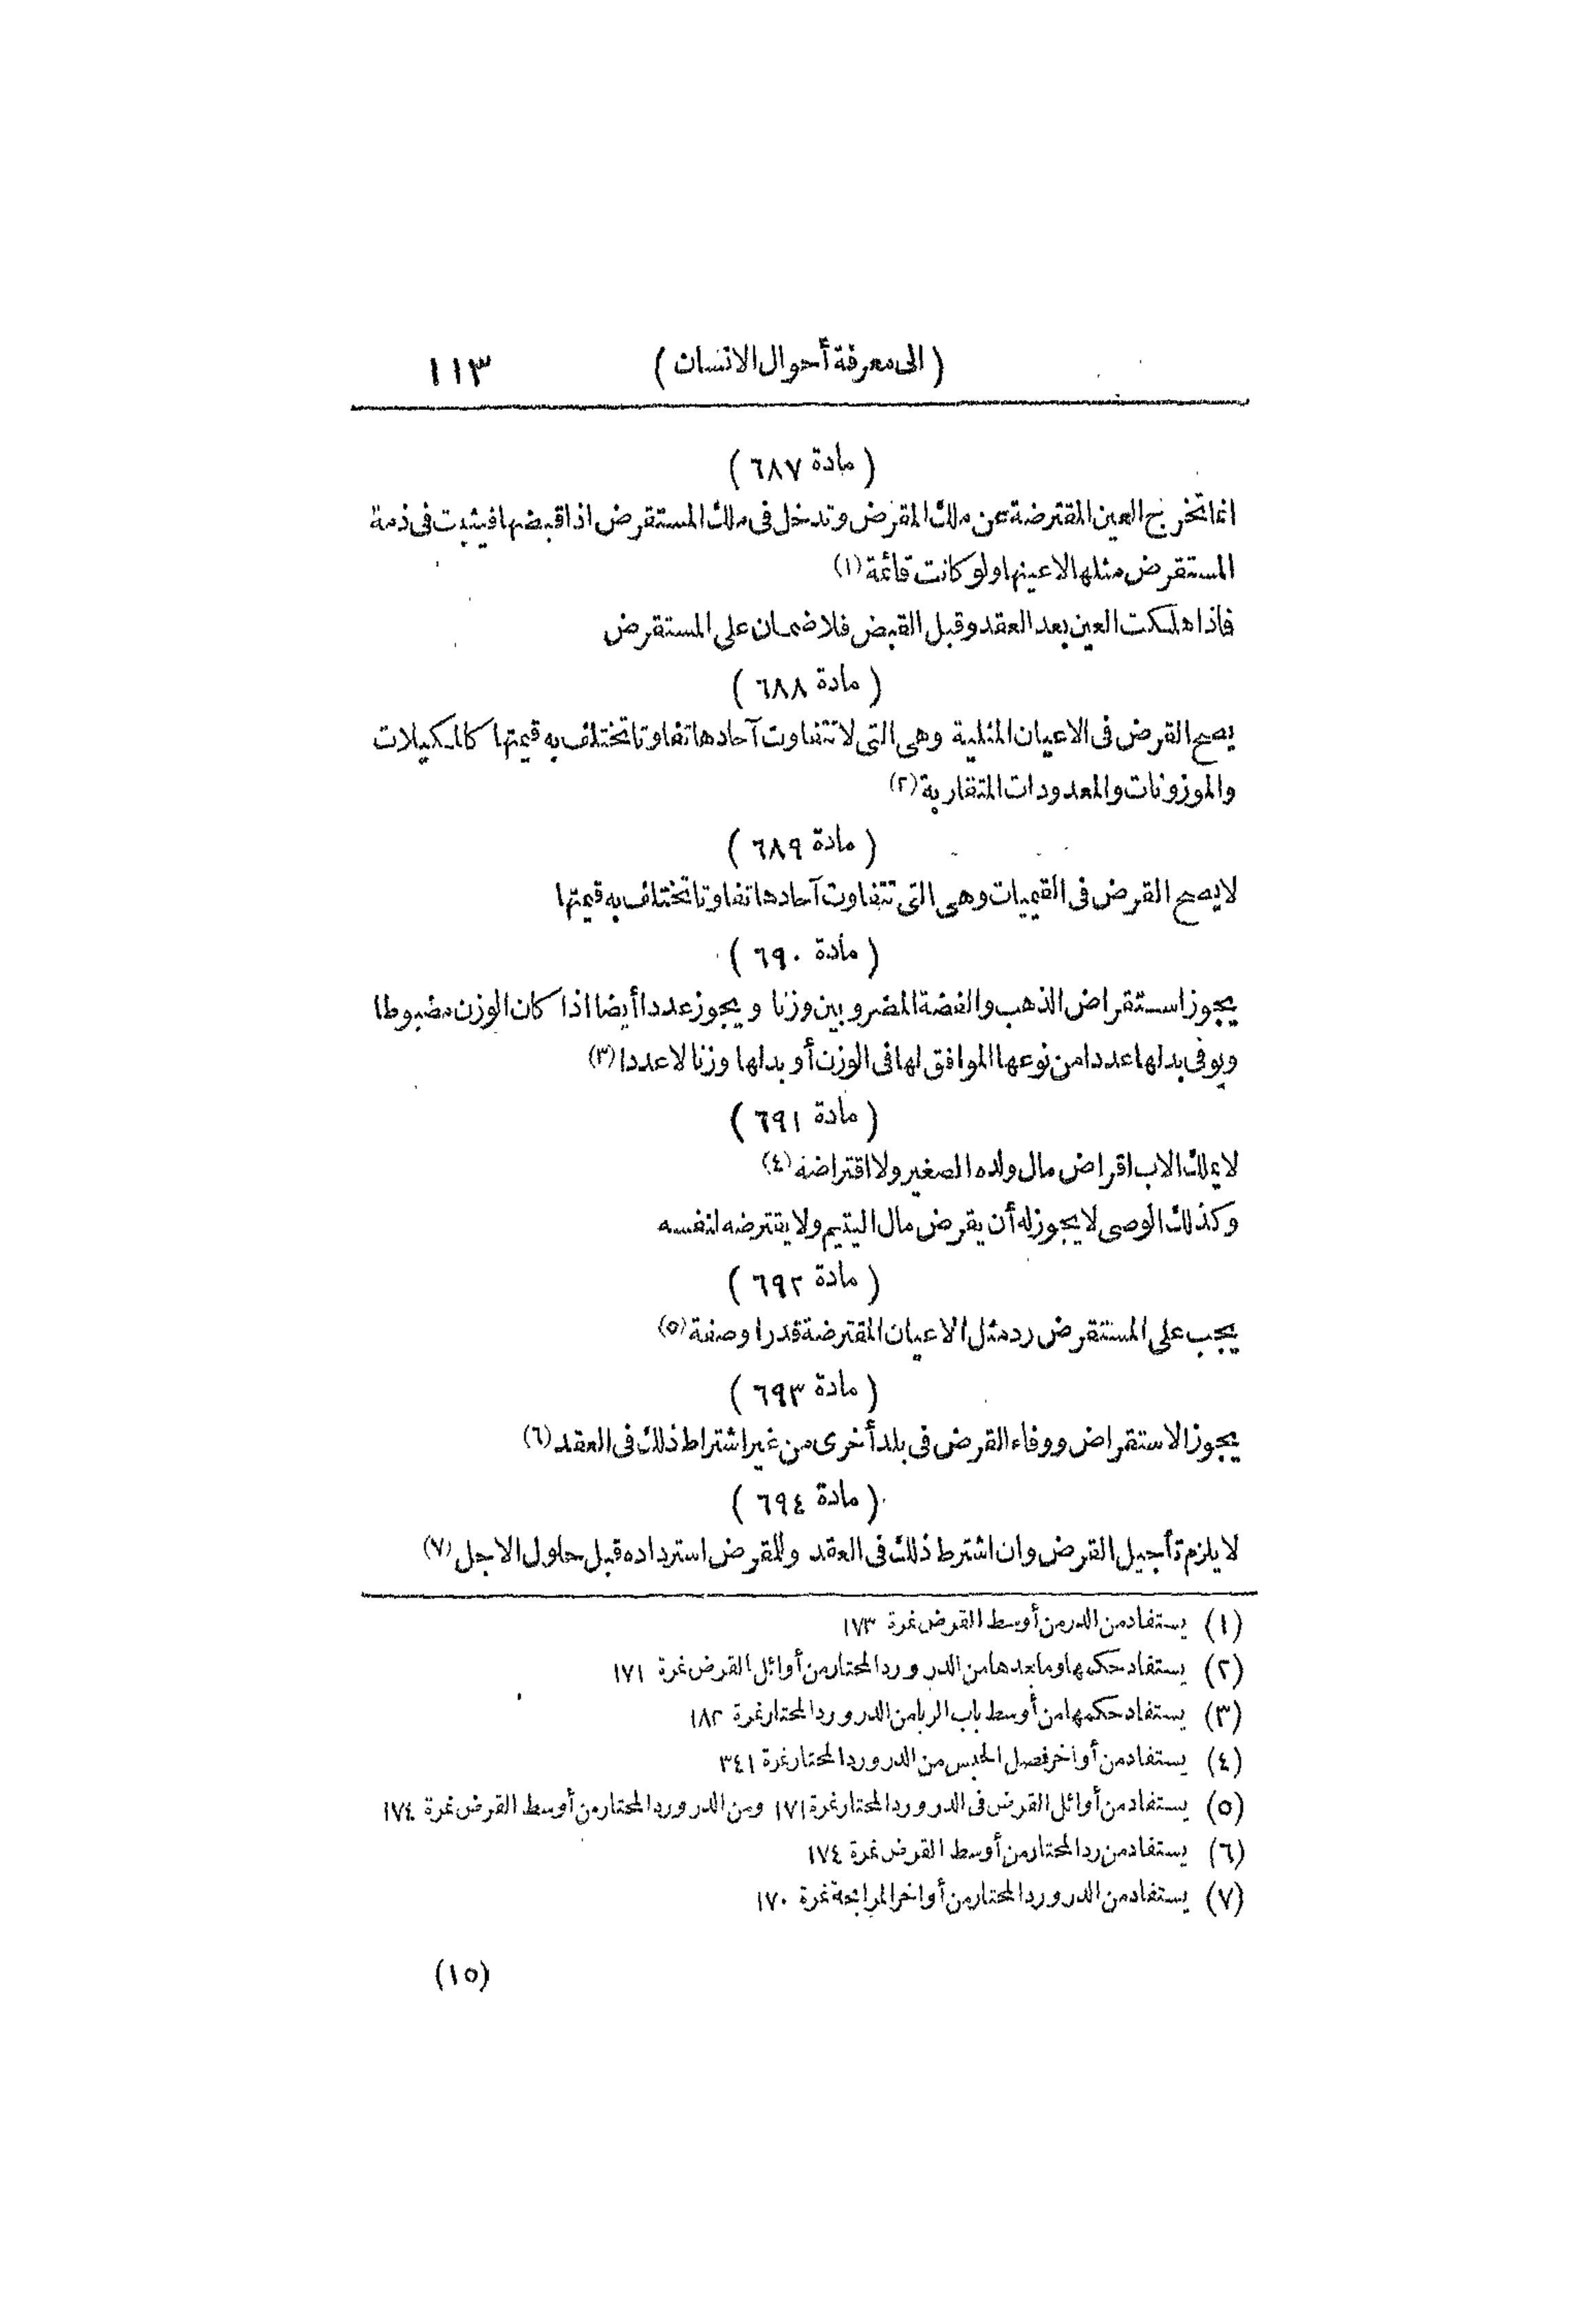 (الى معرفة أحوال الانسان) ١١٣
(مادة ٦٨٧)
انما تخرج العين المقترضة عن ملك المقرض وتدخل فى ملك المستقرض اذا قبضها فيثبت فى ذمة
المستقرض مثلها لاعينها ولو كانت قائمة (١)
فاذا هلكت العين بعد العقد وقبل القبض فلا ضمان على المستقرض
(مادة ٦٨٨)
يصح القرض فى الاعيان المثلية وهى التى لا تتفاوت آحادها تفاوتا تختلف به قيمتها كالمكيلات
والموزونات والمعدودات المتقاربة (٢)
(مادة ٦٨٩)
لا يصح القرض فى القيميات وهى التى تتفاوت آحادها تفاوتا تختلف به قيمتها
(مادة ٦٩٠)
يجوز استقراض الذهب والفضة المضروبين وزنا ويجوز عددا أيضا اذا كان الوزن مضبوطا
ويوفى بدلها عددا من نوعها الموافق لها فى الوزن أو بدلها وزنا لا عددا (٣)
(مادة ٦٩١)
لا يملك الاب اقراض مال ولده الصغير ولا اقتراضه (٤)
وكذلك الوصى لا يجوز له أن يقرض مال اليتيم ولا يقترضه لنفسه
(مادة ٦٩٢)
يجب على المستقرض رد مثل الاعيان المقترضة قدرا وصفة (٥)
(مادة ٦٩٣)
يجوز الاستقراض ووفاء القرض فى بلد أخرى من غير اشتراط ذلك فى العقد (٦)
(مادة ٦٩٤)
لا يلزم تأجيل القرض وان اشترط ذلك فى العقد وللمقرض استرداده قبل حلول الاجل (٧)
(١) يستفاد من الدر من أوسط القرض نمرة ١٧٣
(٢) يستفاد حكمها وما بعدها من الدر ورد المحتار من أوائل القرض نمرة ١٧١
(٣) يستفاد حكمها من أوسط باب الربا من الدر ورد المحتار نمرة ١٨٢
(٤) يستفاد من أواخر فصل الحبس من الدر ورد المحتار نمرة ٣٤١
(٥) يستفاد من أوائل القرض فى الدر ورد المحتار نمرة ١٧١ ومن الدر ورد المحتار من أوسط القرض نمرة ١٧٤
(٦) يستفاد من رد المحتار من أوسط القرض نمرة ١٧٤
(٧) يستفاد من الدر ورد المحتار من أواخر المرابحة نمرة ١٧٠
(١٥)